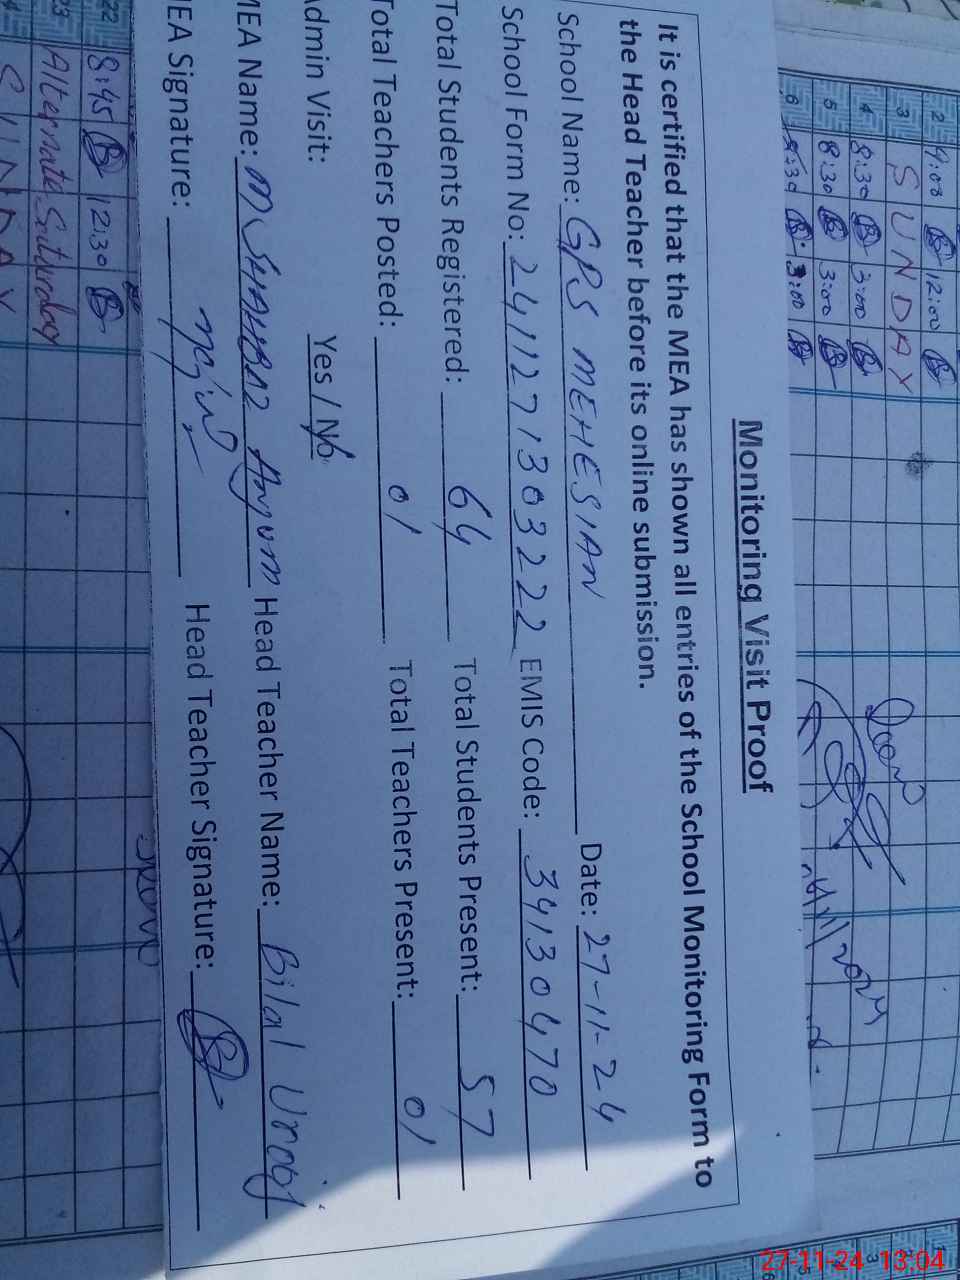 Monitoring Visit Proof
It is certified that the MEA has shown all entries of the School Monitoring Form to
the Head Teacher before its online submission.
School Name: GPS MEHESIAN Date: 27-11-24
School Form No: 2411271303222 EMIS Code: 34130470
Total Students Registered: 64 Total Students Present: 57
Total Teachers Posted: 01 Total Teachers Present: 01
Admin Visit: Yes / No
MEA Name: M SHAHBAZ Anjum Head Teacher Name: Bilal Uroof
MEA Signature: Head Teacher Signature:
2 9:08 12:00
3 SUNDAY
4 8:30 3:00
5 8:30 3:00
6 8:30 3:00
22 8:45 12:30
23 Alternate Saturday
SUNDAY
27-11-24 13:04